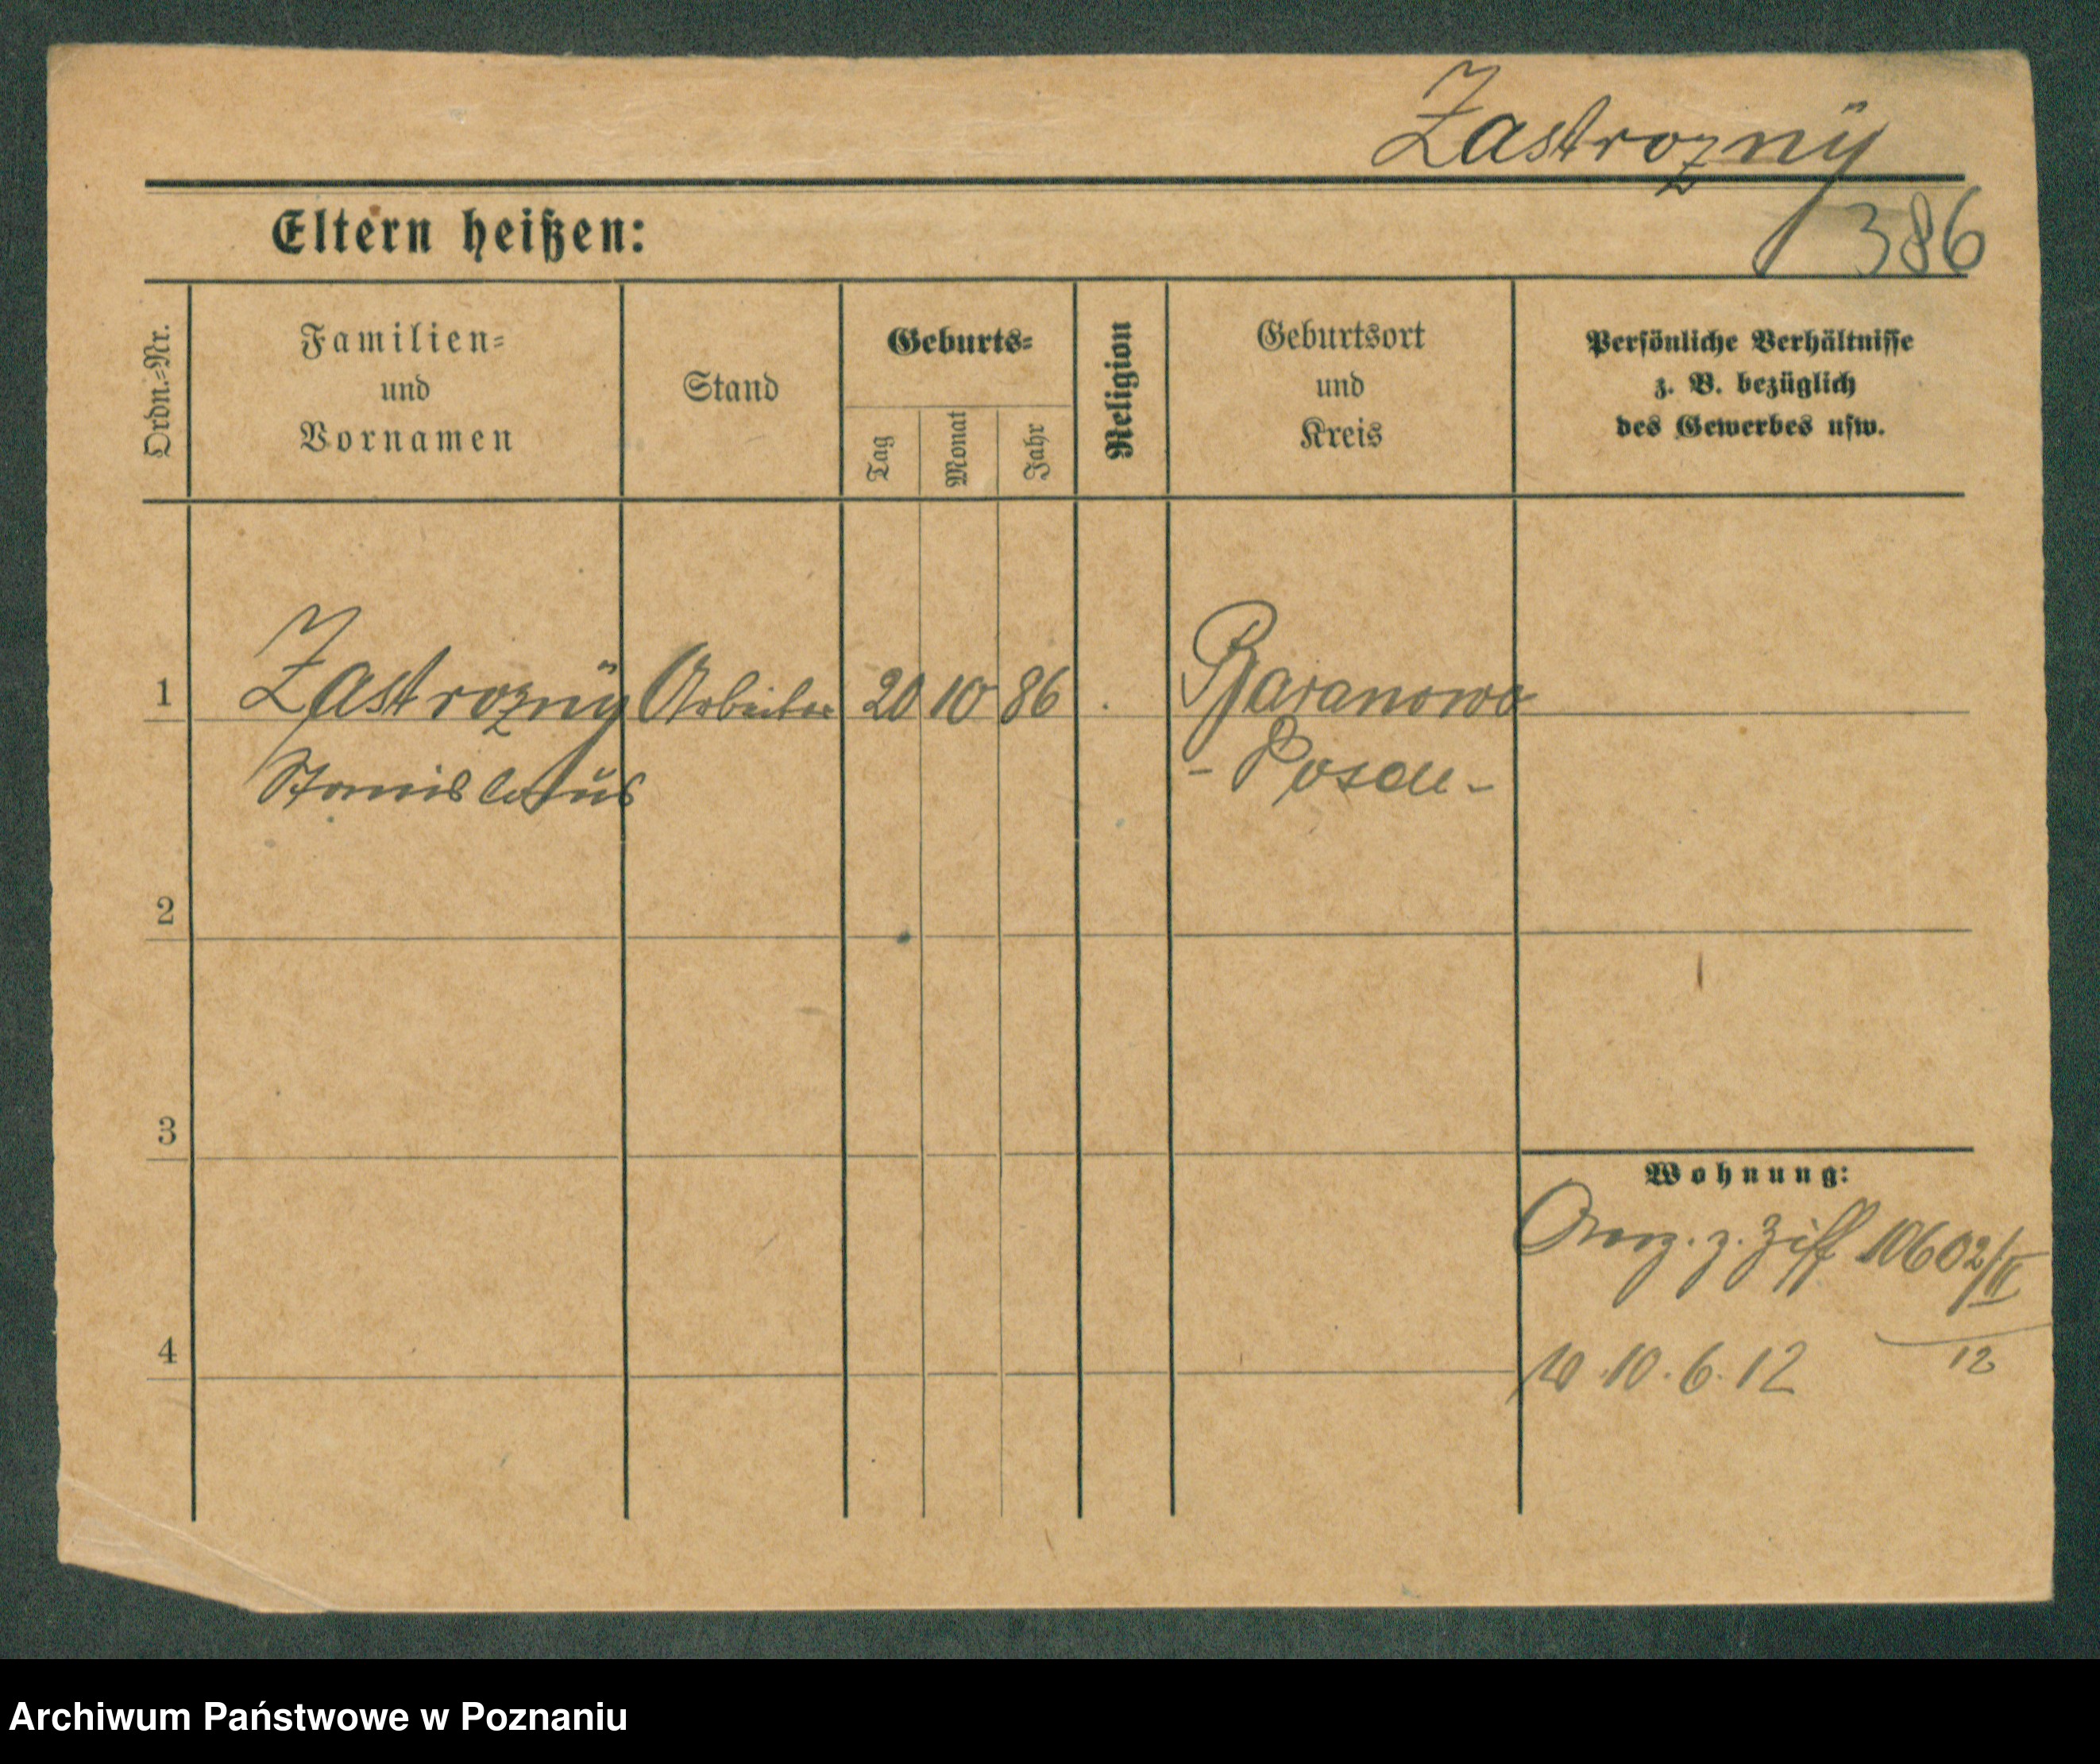 Zastrozny
Eltern heißen:
386
Ordn.=Nr.
Familien=
und
Vornamen
Stand
Geburts=
Tag
Monat
Jahr
Religion
Geburtsort
und
Kreis
Persönliche Verhältnisse
z. B. bezüglich
des Gewerbes usw.
1 Zastrozny Arbeiter 20 10 86 Baranowo
Stanislaus - Posen -
2
3
Wohnung:
z. Ziff 10602/II
12
4
10.6.12
Archiwum Państwowe w Poznaniu